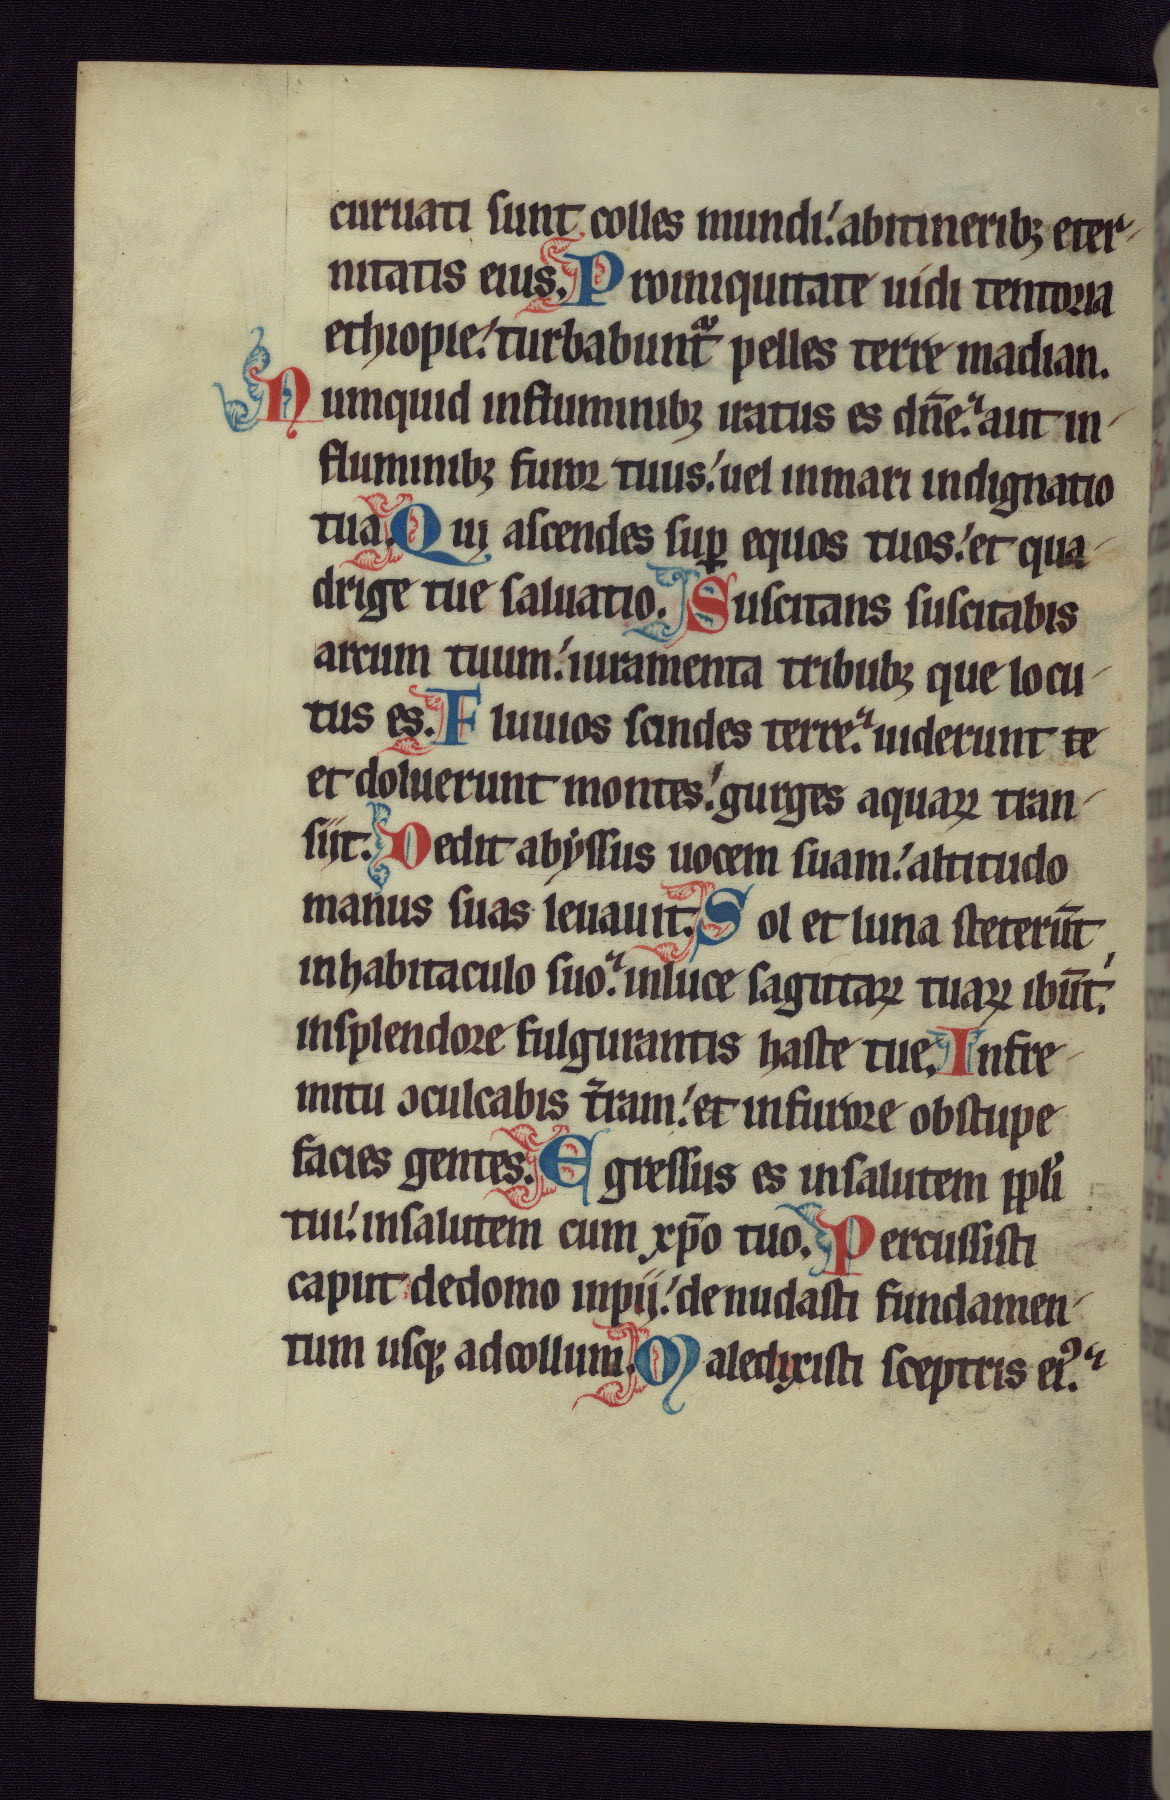 curuati sunt colles mundi. abitineribꝫ eter-
nitatis eius. Proiniquitate uidi tentoria
ethiopie. turbabunt᷑ pelles terre madian.
Numquid influminibꝫ iratus es dn̄e. aut in-
fluminibꝫ furor tuus. uel inmari indignatio
tua. Qui ascendes suꝑ equos tuos. et qua-
drige tue saluatio. Suscitans suscitabis
arcum tuum. iuramenta tribubꝫ que locu-
tus es. Fluuios scindes terre. uiderunt te
et doluerunt montes. gurges aquaꝝ tran-
sijt. Dedit abẏssus uocem suam. altitudo
manus suas leuauit. Sol et luna steterūt
inhabitaculo suo. inluce sagittaꝝ tuaꝝ ibūt.
insplendore fulgurantis haste tue. Infre-
mitu ꝯculcabis t̄ram. et infurore obstupe
facies gentes. Egressus es insalutem ppl̓i
tui. insalutem cum xp̄o tuo. Percussisti
caput dedomo inpij. denudasti fundamen-
tum usqꝫ adcollum. Maledixisti sceptris eiꝰ.